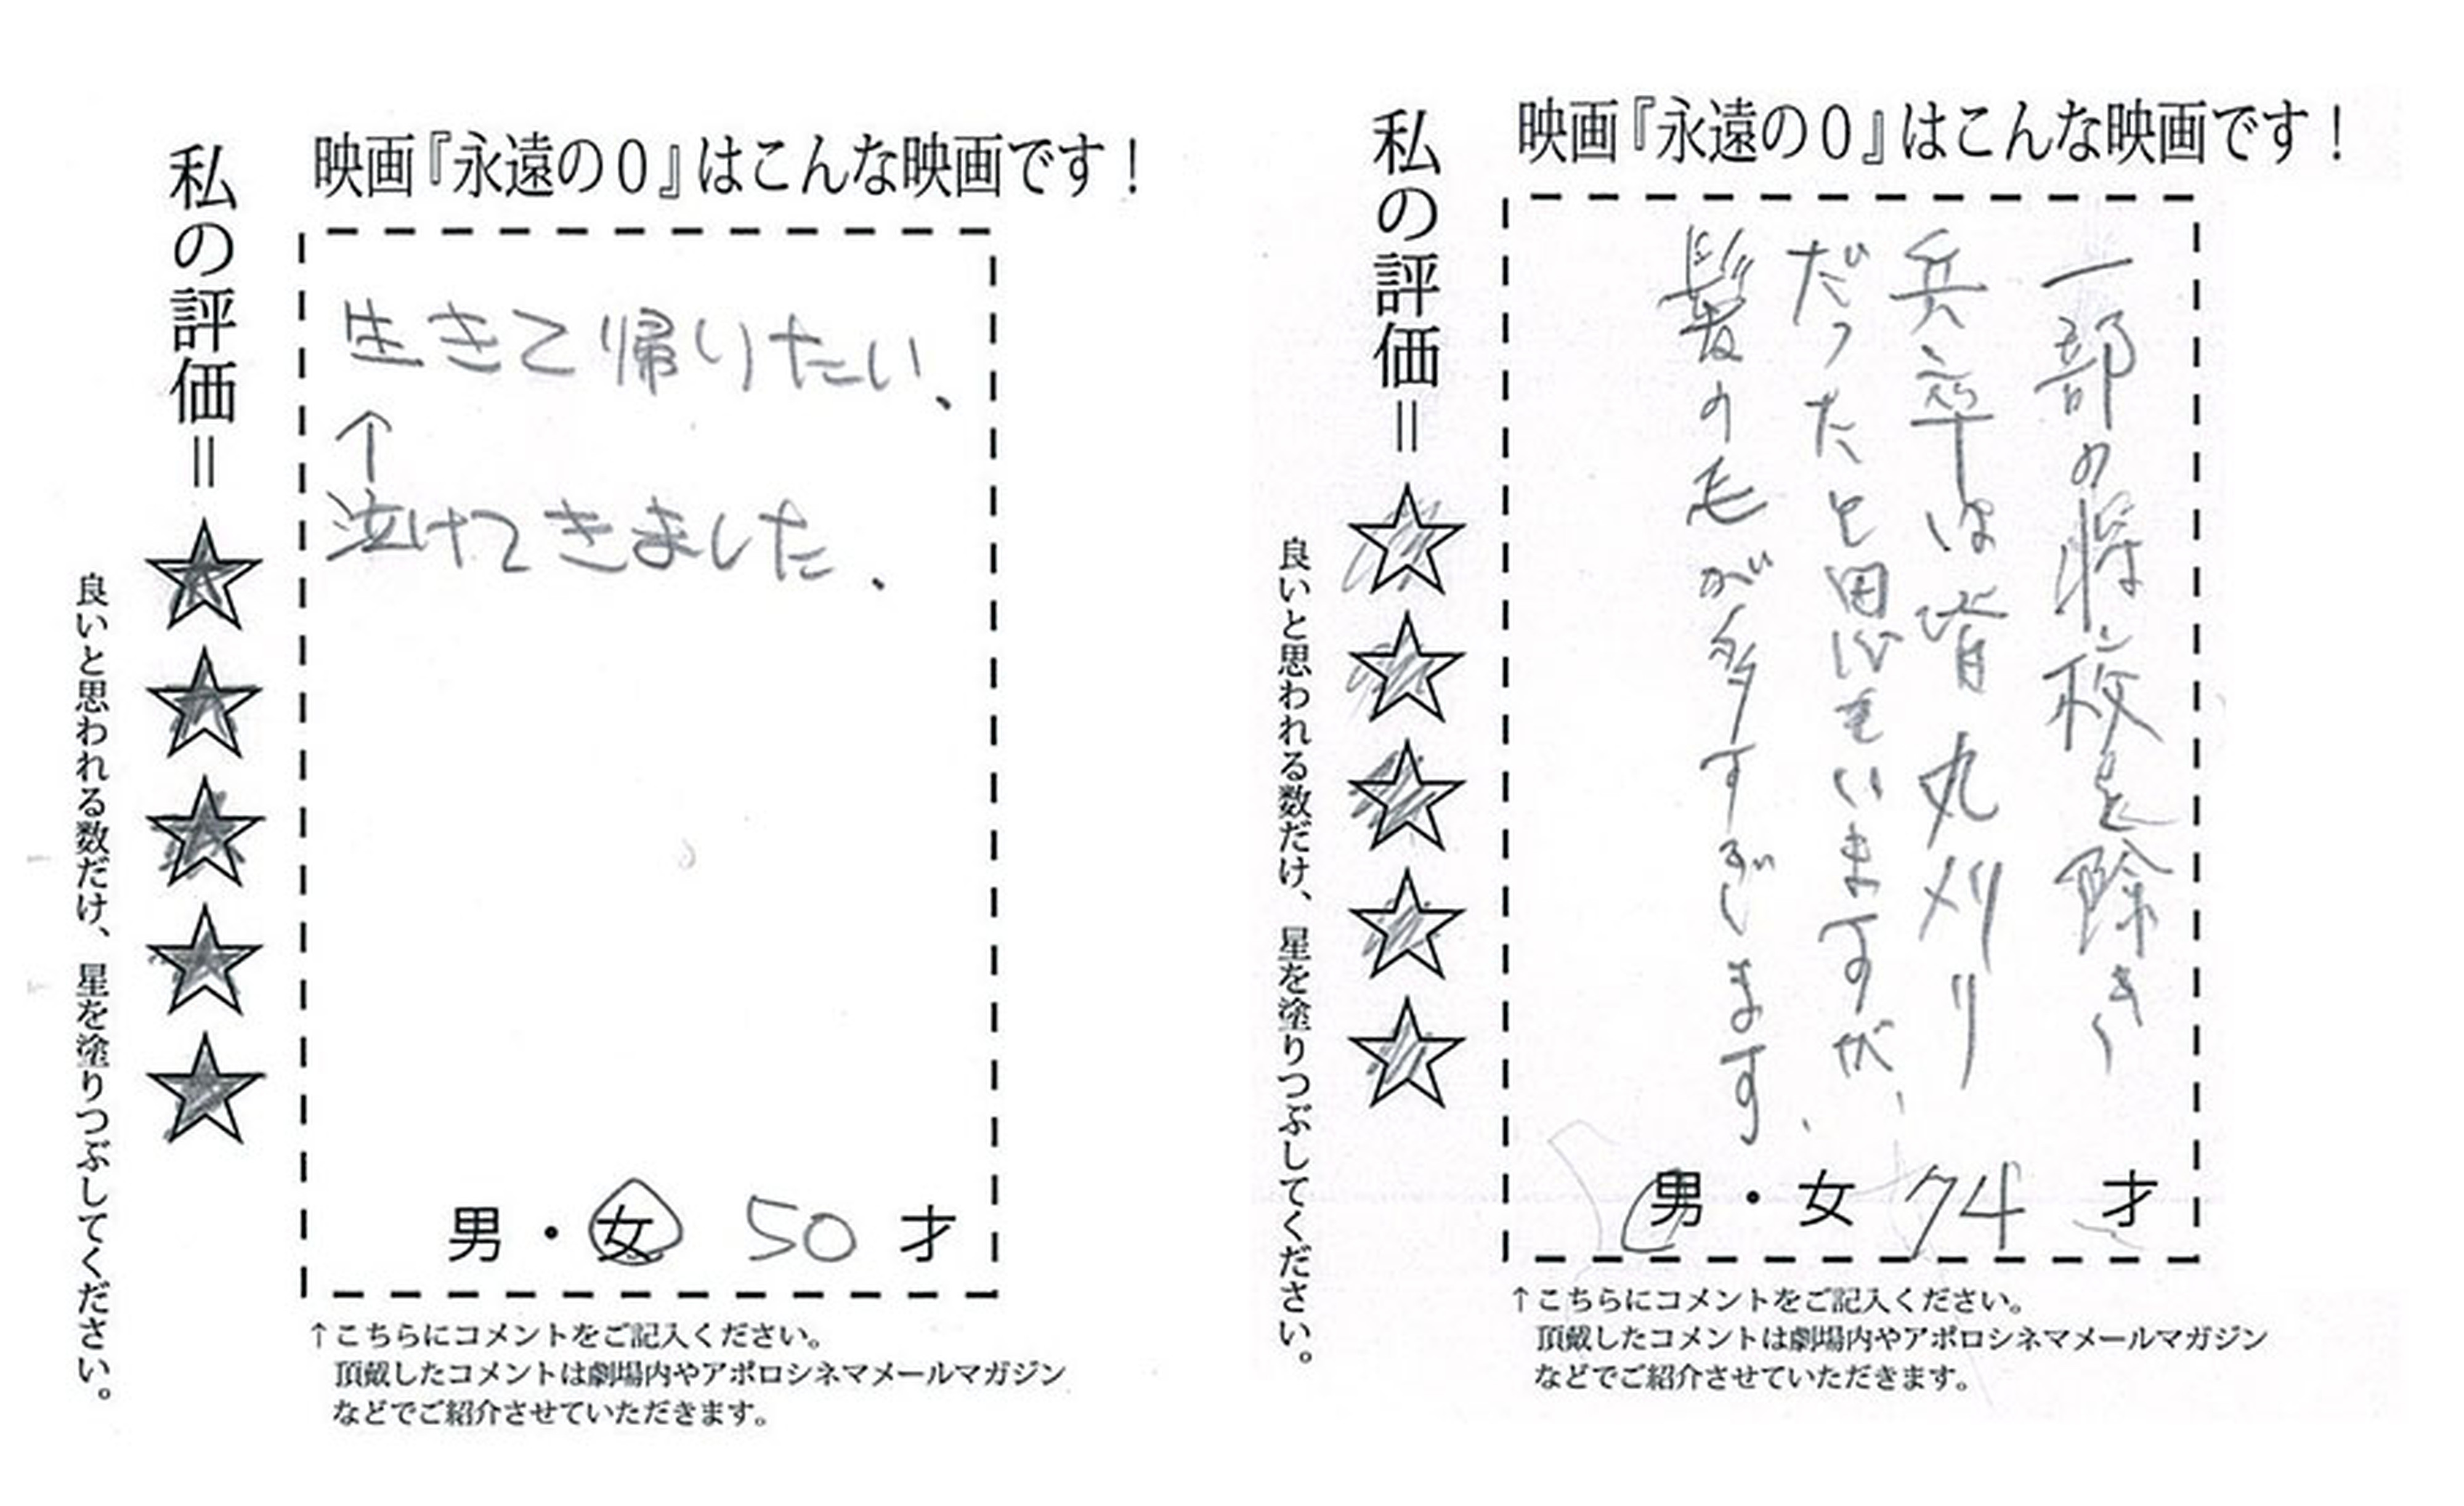 映画『永遠の０』はこんな映画です！
私の評価＝☆☆☆☆☆
良いと思われる数だけ、星を塗りつぶしてください。
生きて帰りたい、
↑
泣けてきました.
男・女 50 才
↑こちらにコメントをご記入ください。
頂戴したコメントは劇場内やアポロシネマメールマガジン
などでご紹介させていただきます。
映画『永遠の０』はこんな映画です！
私の評価＝☆☆☆☆☆
良いと思われる数だけ、星を塗りつぶしてください。
一部の将校を除き、
兵卒は皆丸刈り
だったと思いますが、
髪の毛が多すぎます、
男・女 74 才
↑こちらにコメントをご記入ください。
頂戴したコメントは劇場内やアポロシネマメールマガジン
などでご紹介させていただきます。